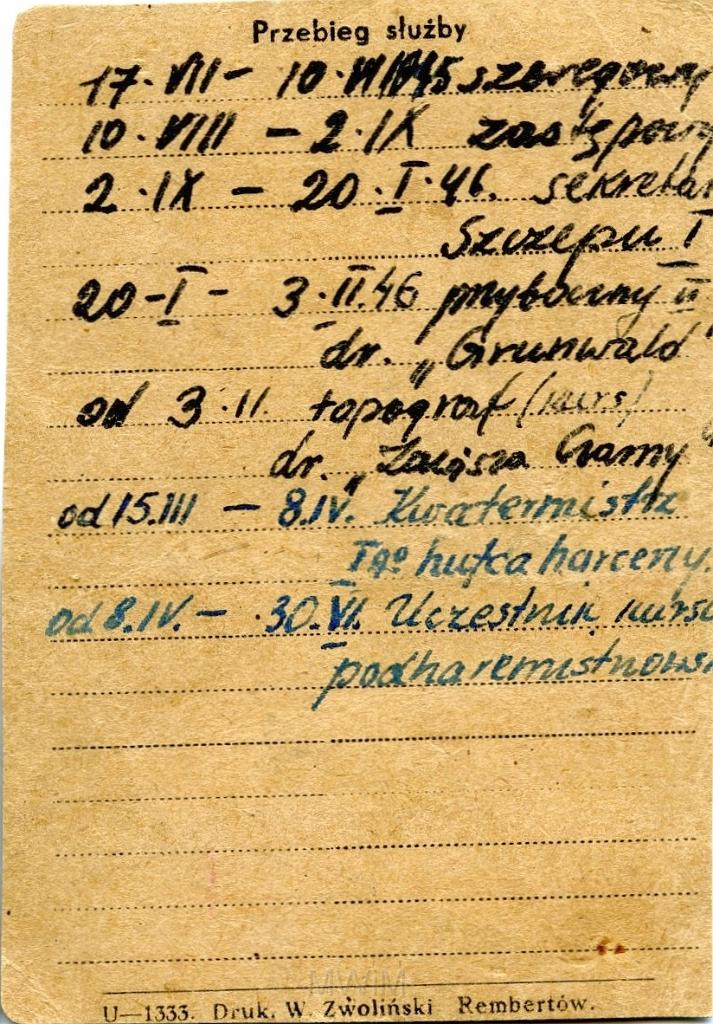 Przebieg służby
17·VII – 10·VIII 1945 szeregowy
10·VIII – 2·IX zastępowy
2·IX – 20·I·46. sekretar
Szczepu I
20–I– 3·II.46 przyboczny II
dr. „Grunwald"
od 3·II. topograf (kurs)
dr. „Zawisza Czarny"
od 15.III – 8.IV. Kwatermistrz
Igo hufca harcerzy.
od 8.IV. – 30.VI. Uczestnik kurso
podharcmistrzowsk
MWiM
U—1333. Druk. W. Zwoliński Rembertów.